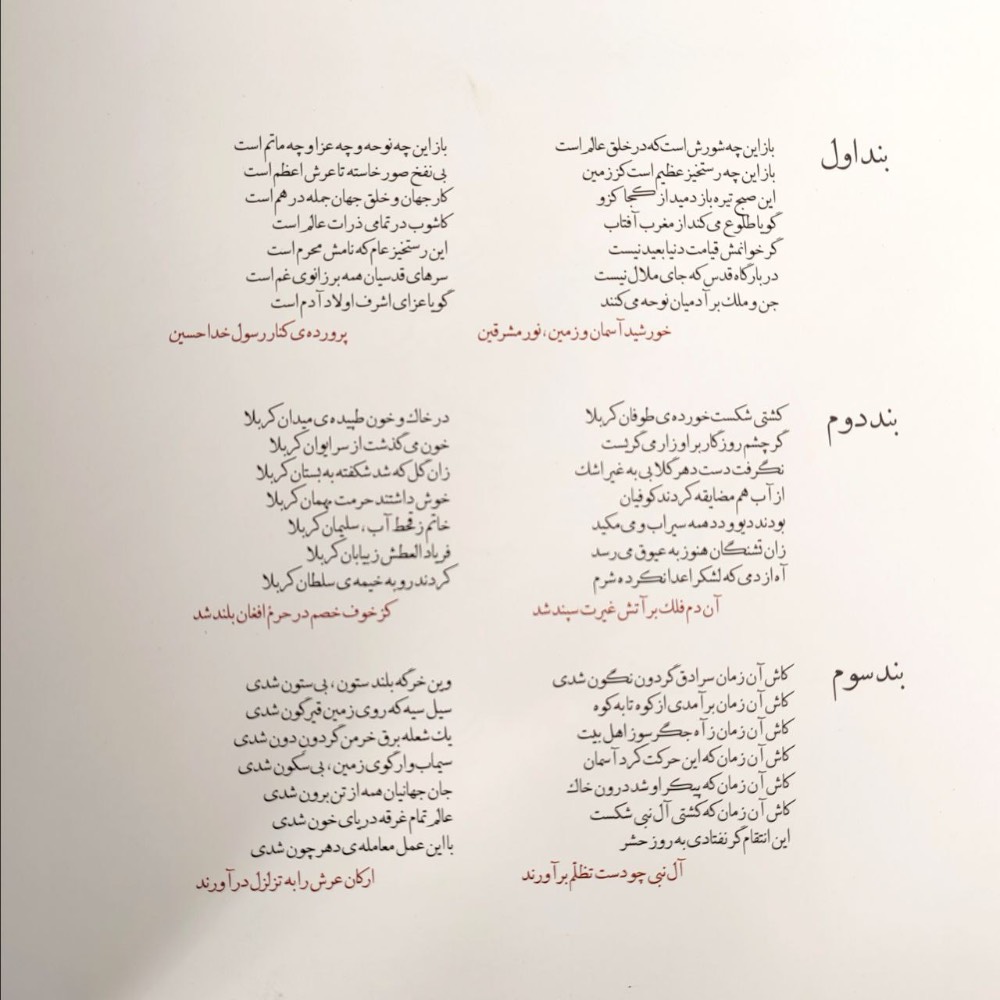 بند اول
باز این چه شورش است که در خلق عالم است باز این چه نوحه و چه عزا و چه ماتم است
باز این چه رستخیز عظیم است کز زمین بی نفخ صور خاسته تا عرش اعظم است
این صبح تیره باز دمید از کجا کزو کار جهان و خلق جهان جمله در هم است
گویا طلوع می‌کند از مغرب آفتاب کاشوب در تمامی ذرات عالم است
گر خوانمش قیامت دنیا بعید نیست این رستخیز عام که نامش محرم است
در بارگاه قدس که جای ملال نیست سرهای قدسیان همه بر زانوی غم است
جن و ملک بر آدمیان نوحه می‌کنند گویا عزای اشرف اولاد آدم است
خورشید آسمان و زمین، نور مشرقین پرورده‌ی کنار رسول خدا حسین
بند دوم
کشتی شکست خورده‌ی طوفان کربلا در خاک و خون طپیده‌ی میدان کربلا
گر چشم روزگار بر او زار می‌گریست خون می‌گذشت از سر ایوان کربلا
نگرفت دست دهر گلابی به غیر اشک زان گل که شد شکفته به بستان کربلا
از آب هم مضایقه کردند کوفیان خوش داشتند حرمت مهمان کربلا
بودند دیو و دد همه سیراب و می‌مکید خاتم ز قحط آب، سلیمان کربلا
زان تشنگان هنوز به عیوق می‌رسد فریاد العطش ز بیابان کربلا
آه از دمی که لشکر اعدا نکرده شرم کردند رو به خیمه‌ی سلطان کربلا
آن دم فلک بر آتش غیرت سپند شد کز خوف خصم در حرم افغان بلند شد
بند سوم
کاش آن زمان سرادق گردون نگون شدی وین خرگه بلند ستون، بی‌ستون شدی
کاش آن زمان برآمدی از کوه تا به کوه سیل سیه که روی زمین قیرگون شدی
کاش آن زمان ز آه جگرسوز اهل بیت یک شعله برق خرمن گردونِ دون شدی
کاش آن زمان که این حرکت کرد آسمان سیماب‌وار گوی زمین، بی‌سکون شدی
کاش آن زمان که پیکر او شد درون خاک جان جهانیان همه از تن برون شدی
کاش آن زمان که کشتی آل نبی شکست عالم تمام غرقه دریای خون شدی
این انتقام گر نفتادی به روز حشر با این عمل معامله‌ی دهر چون شدی
آل نبی چو دست تظلّم برآورند ارکان عرش را به تزلزل درآورند